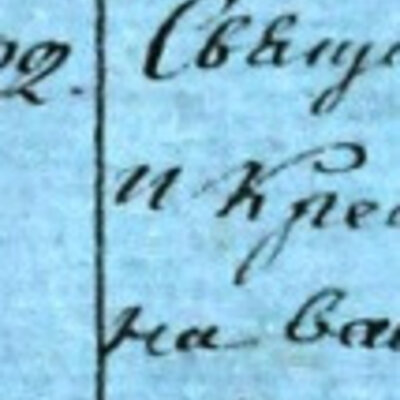 02. Свяще
и Кре
на ва